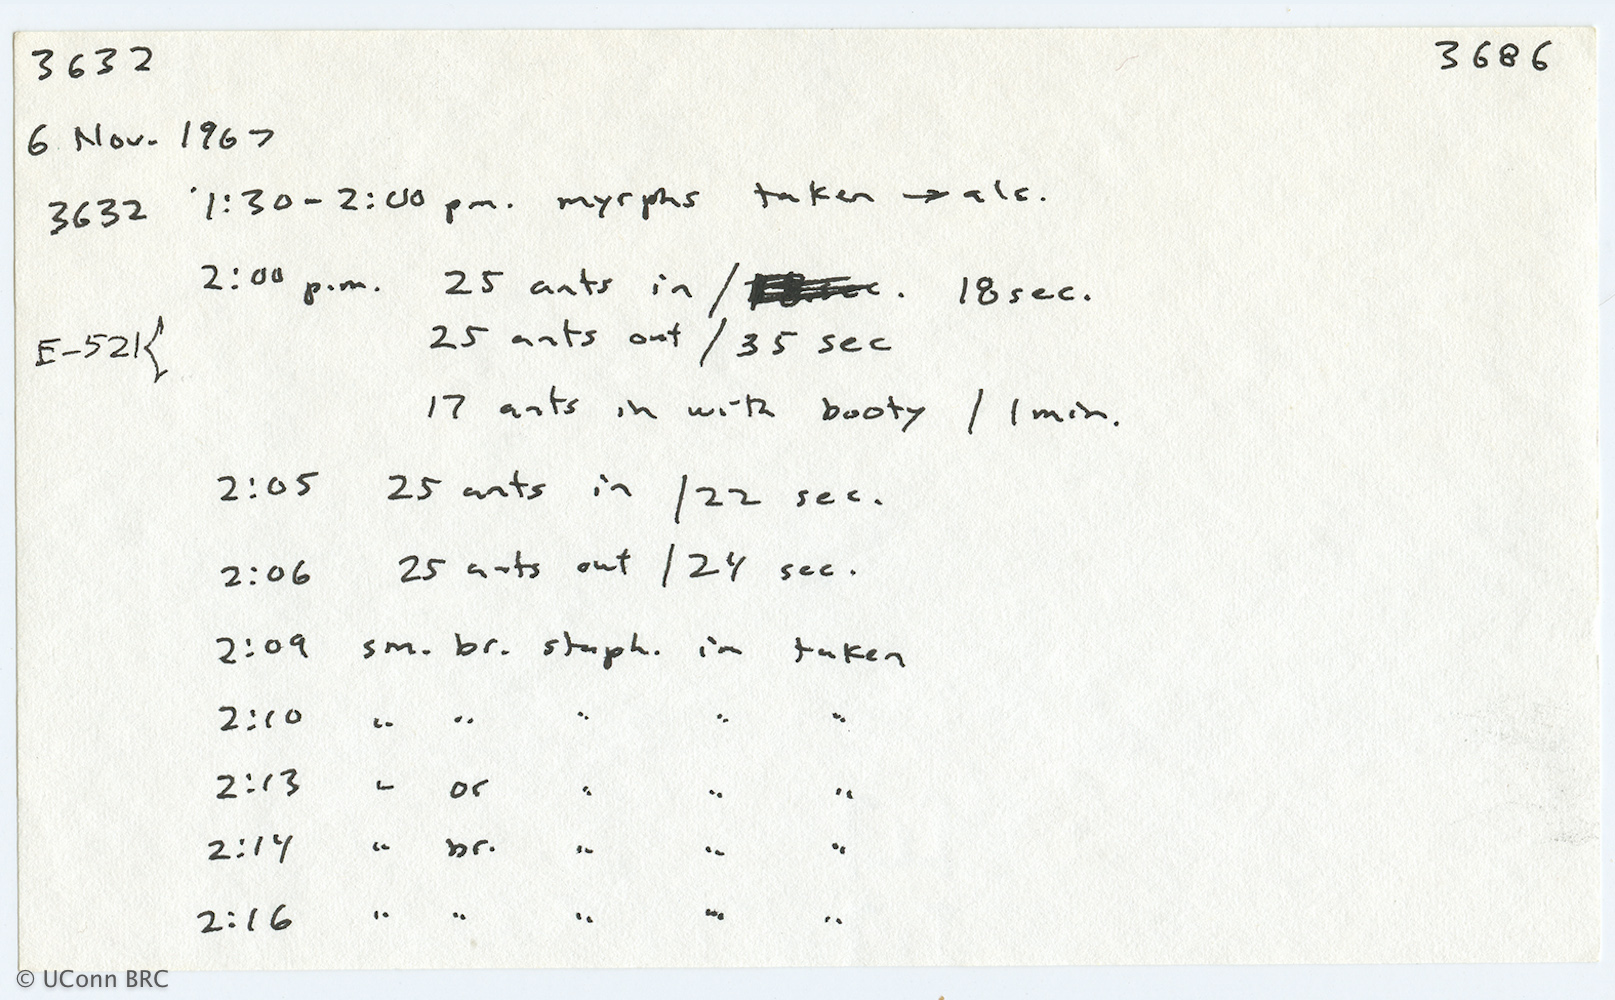 3632 3686
6 Nov. 1967
3632 1:30-2:00 pm. myrphs taken → alc.
2:00 p.m. 25 ants in / 18 sec.
E-521{ 25 ants out / 35 sec
17 ants in with booty / 1 min.
2:05 25 ants in / 22 sec.
2:06 25 ants out / 24 sec.
2:09 sm. br. staph. in taken
2:10 " " " " "
2:13 " or " " "
2:14 " br. " " "
2:16 " " " " "
© UConn BRC